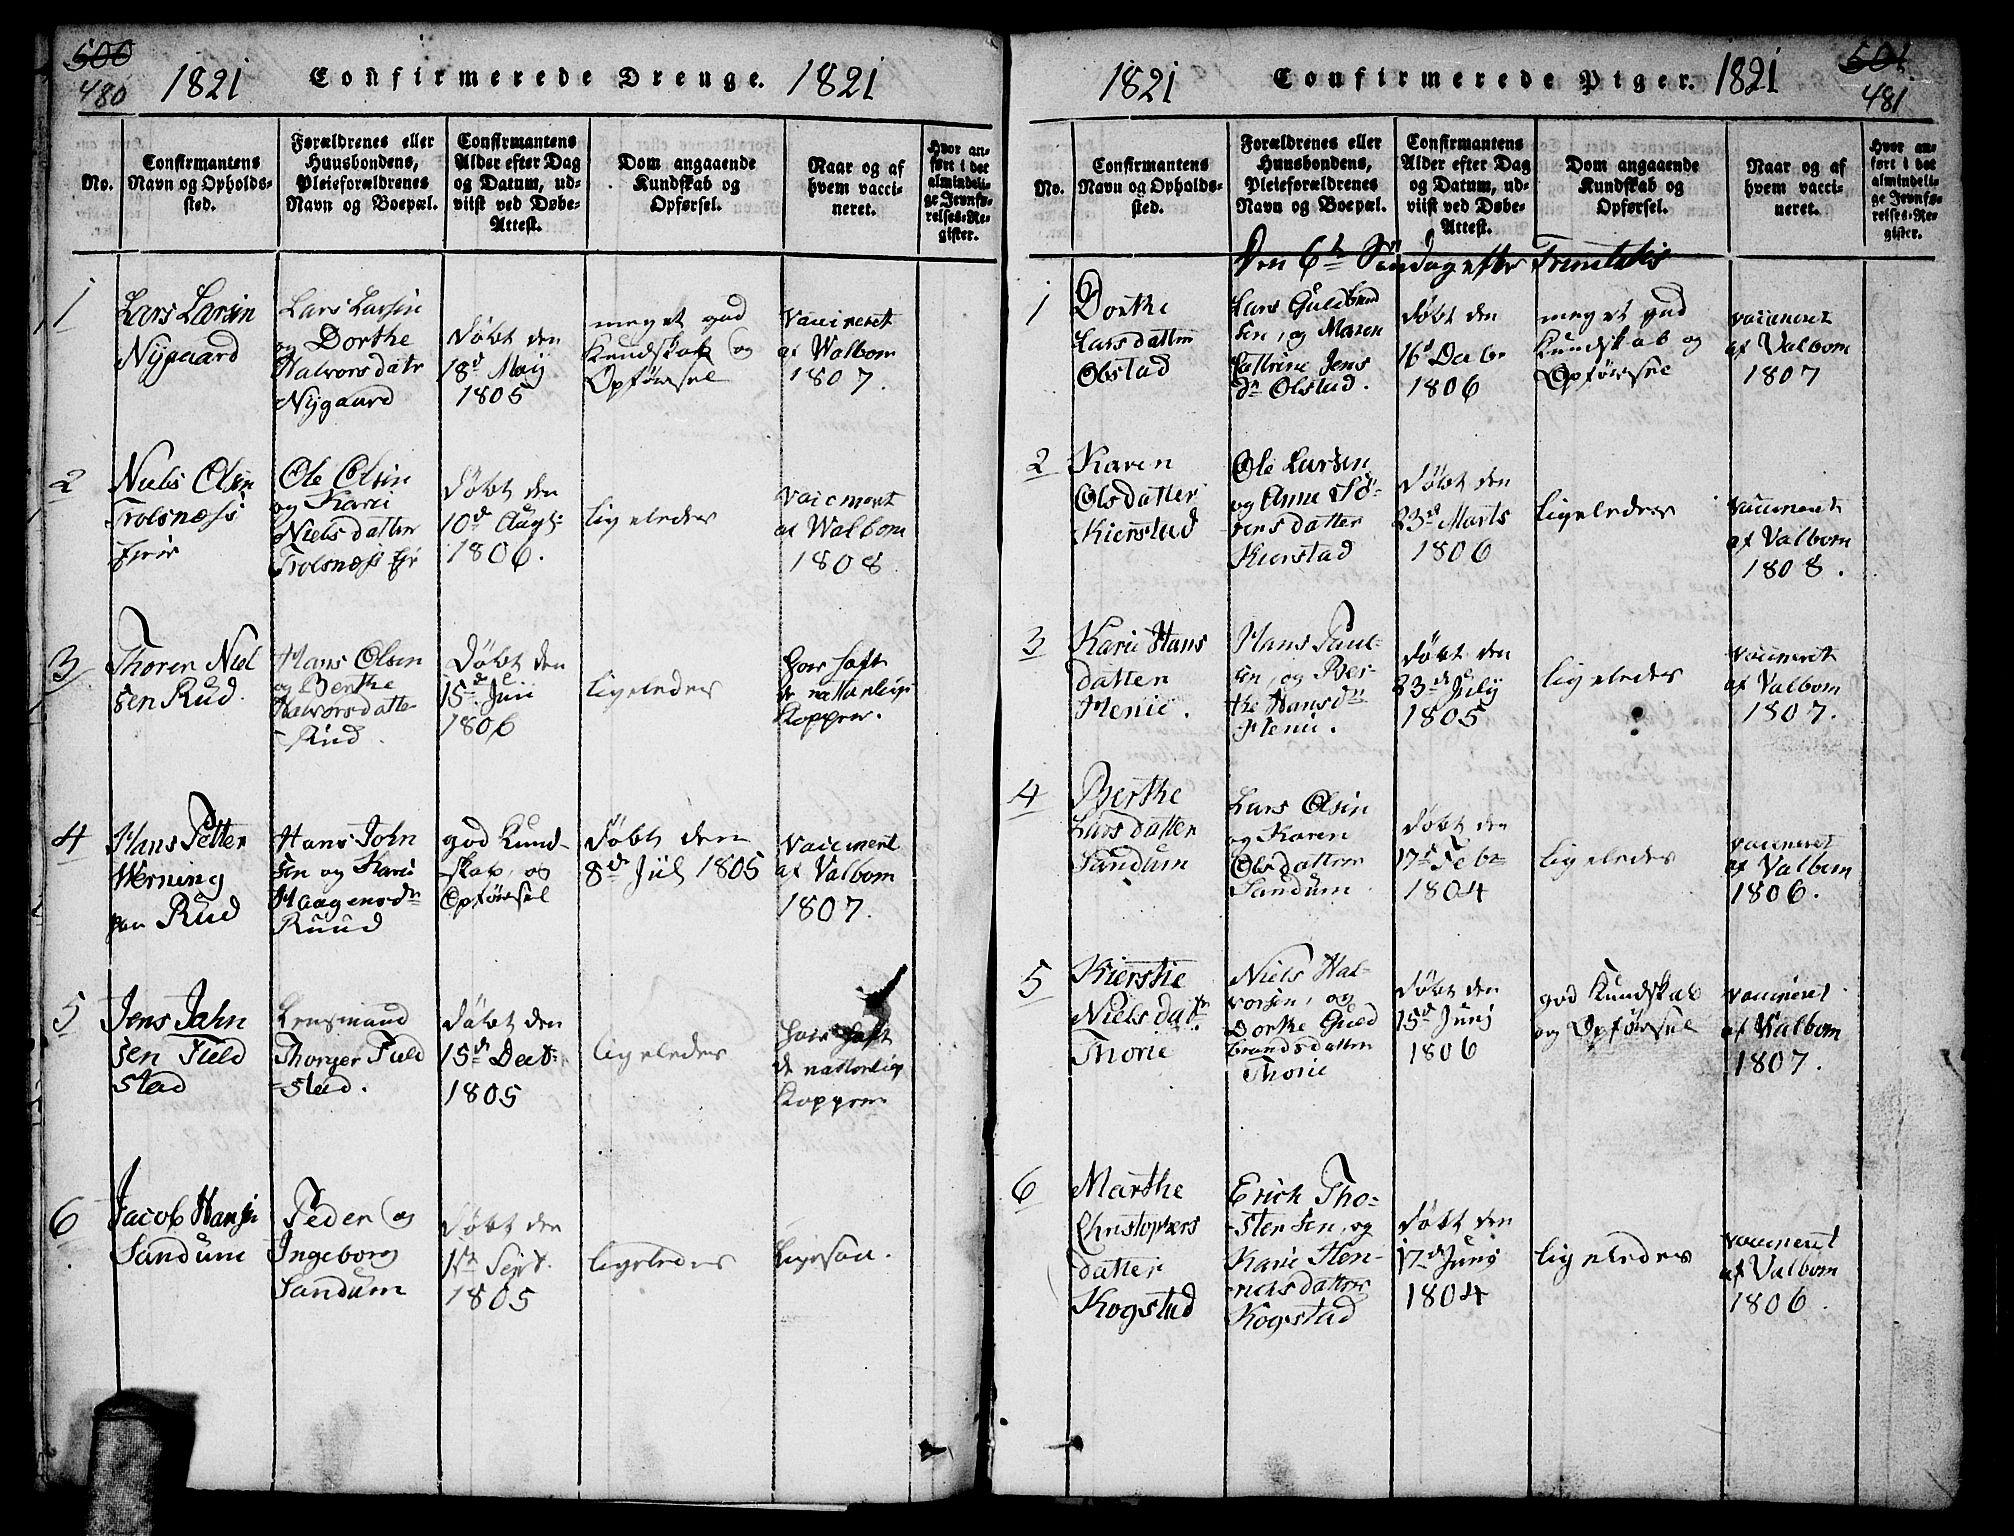 500
480
1821 Confirmerede Drenge. 1821
No.
Confirmantens
Navn og Opholds-
sted.
Forældrenes eller
Huusbondens,
Pleieforældrenes
Navn og Boepæl.
Confirmantens
Alder efter Dag
og Datum, ud-
viist ved Døbe-
Attest.
Dom angaaende
Kundskab og
Opførsel.
Naar og af
hvem vacci-
neret.
Hvor an-
ført i det
almindeli-
ge Jevnfø-
relses-Re-
gister.
1
Lars Larsen
Nygaard
Lars Larsen
og Dorthe
Halvorsdatr
Nygaard
Døbt den
18d May
1805
meget god
Kundskab og
Opførsel
vaccineret
af Walbom
1807.
2
Niels Olsen
Trolsnæss
Eier
Ole Olsen
og Kari
Nielsdatter
Trolsnæss Eir
Døbt den
10d Augt:
1806.
ligeledes
vaccineret
af Walbom
1808
3
Thoren Niel
sen Rud.
Hans Olsen
og Berthe
Halvorsdatte-
-Rud.
Døbt den
15de Juni
1806
ligeledes
har haft
de naturlige
Kopper.
4
Hans Petter
Werning
paa Rud
Hans John
sen og Kari
Haagensdr
Ruud
god Kund-
skab, og
Opførsel
Døbt den
8de Juli 1805
vaccineret
af Valbom
1807.
5
Jens Jahn
sen Fuld
stad
Lensmand
Thorger Fuld
-stad.
Døbt den
15de Decbr
1805
ligeledes
har haft
de naturlige
Kopper
6
Jacob Hansen
Sandum
Peder og
Ingeborg
Sandum
Døbt den
1te Sept.
1805
ligeledes
ligesaa.
501
481
1821 Confirmerede Piger. 1821
No.
Confirmantens
Navn og Opholds-
sted.
Forældrenes eller
Huusbondens,
Pleieforældrenes
Navn og Boepæl.
Confirmantens
Alder efter Dag
og Datum, ud-
viist ved Døbe-
Attest.
Dom angaaende
Kundskab og
Opførsel.
Naar og af
hvem vacci-
neret.
Hvor an-
ført i det
almindeli-
ge Jevnfø-
relses-Re-
gister.
Den 6te Søndag efter Trinitatis
1
Dorthe
Larsdatter
Olstad
Lars Guldbrand
sen, og Maren
Cathrine Jens
dr Olstad.
Døbt den
16d Decbr
1806
meget god
Kundskab og
Opførsel
vaccineret
af Valbom
1807
2
Karen
Olsdatter
Kierstad
Ole Larsen
og Anne Sø-
rensdatter
Kierstad
Døbt den
23d Marts
1806
ligeledes
vaccineret
af Valbom
1808.
3
Karie Hans
datter
Henie.
Hans Paul-
sen, og Ber-
the Hansdr
Henie.
Døbt den
23de July
1805
ligeledes
vaccineret
af Valbom
1807.
4
Berthe
Larsdatter
Sandum
Lars Olsen
og Karen
Olsdatter
Sandum
Døbt den
17d Febr
1804
ligeledes
vaccineret
af Valbom
1806.
5
Kierstie
Nielsdatr.
Thorie
Niels Hal-
vorsen, og
Dorthe Guld
brandsdatter
Thorie
Døbt den
15d Junj
1806
god Kundskab
og Opførsel
vaccineret
af Valbom
1807.
6
Marthe
Christophers
datter
Kogstad
Erich Tho-
stensen, og
Karie Hen-
richsdatter
Kogstad
Døbt den
17de Junj
1804
ligeledes
vaccineret
af Valbom
1806.